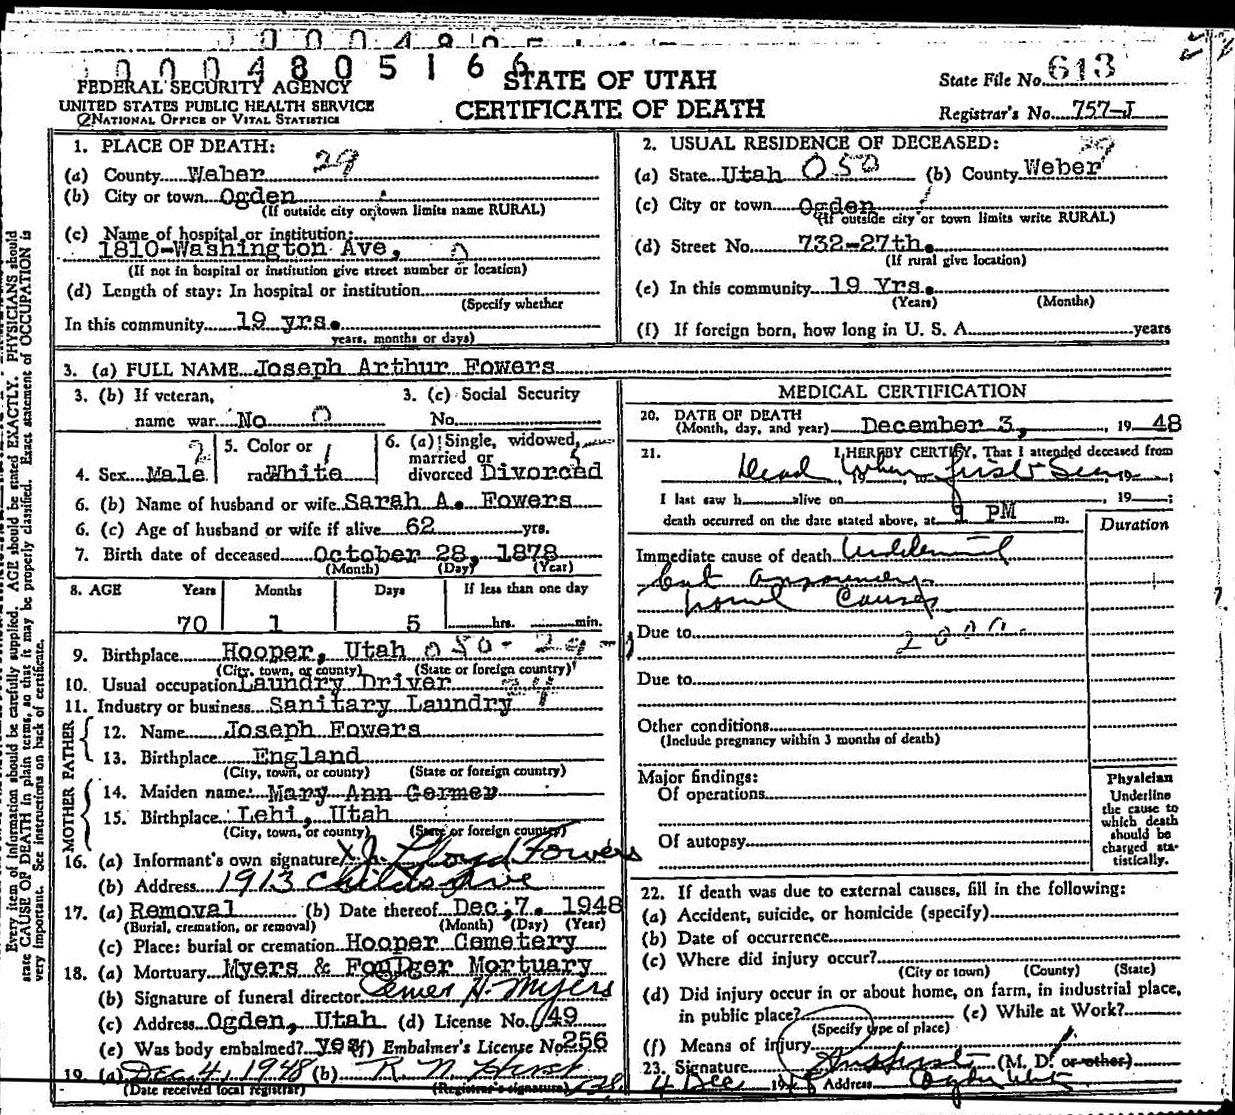 0004805166
FEDERAL SECURITY AGENCY
UNITED STATES PUBLIC HEALTH SERVICE
NATIONAL OFFICE OF VITAL STATISTICS
STATE OF UTAH
CERTIFICATE OF DEATH
State File No. 613
Registrar's No. 757-J
1. PLACE OF DEATH: 29
(a) County Weber
(b) City or town Ogden
(If outside city or town limits name RURAL)
(c) Name of hospital or institution:
1810-Washington Ave,
(If not in hospital or institution give street number or location)
(d) Length of stay: In hospital or institution
(Specify whether
In this community 19 yrs.
years, months or days)
2. USUAL RESIDENCE OF DECEASED: 29
(a) State Utah 050 (b) County Weber
(c) City or town Ogden
(If outside city or town limits write RURAL)
(d) Street No. 732-27th.
(If rural give location)
(e) In this community 19 Yrs.
(Years) (Months)
(f) If foreign born, how long in U. S. A. years
3. (a) FULL NAME Joseph Arthur Fowers
3. (b) If veteran,
name war No 0
3. (c) Social Security
No.
4. Sex Male 2
5. Color or
race White 1
6. (a) Single, widowed,
married or
divorced Divorced 5
6. (b) Name of husband or wife Sarah A. Fowers
6. (c) Age of husband or wife if alive 62 yrs.
7. Birth date of deceased October 28, 1878
(Month) (Day) (Year)
8. AGE Years Months Days If less than one day
70 1 5 hrs. min.
9. Birthplace Hooper, Utah 050-29
(City, town, or county) (State or foreign country)
10. Usual occupation Laundry Driver
11. Industry or business Sanitary Laundry
FATHER
12. Name Joseph Fowers
13. Birthplace England
(City, town, or county) (State or foreign country)
MOTHER
14. Maiden name: Mary Ann Germer
15. Birthplace Lehi, Utah
(City, town, or county) (State or foreign country)
16. (a) Informant's own signature X J. Lloyd Fowers
(b) Address 1913 Childs Ave
17. (a) Removal (b) Date thereof Dec; 7. 1948
(Burial, cremation, or removal) (Month) (Day) (Year)
(c) Place: burial or cremation Hooper Cemetery
18. (a) Mortuary Myers & Foulger Mortuary
(b) Signature of funeral director Elmer H. Myers
(c) Address Ogden, Utah (d) License No. 149
(e) Was body embalmed? yes (f) Embalmer's License No. 256
19. (a) Dec 4, 1948 (b)
(Date received local registrar) (Registrar's signature)
MEDICAL CERTIFICATION
20. DATE OF DEATH
(Month, day, and year) December 3, 19 48
21. I HEREBY CERTIFY, That I attended deceased from
Dead when first seen
, 19 , to , 19 ;
I last saw h alive on , 19 ;
death occurred on the date stated above, at 9 PM m.
Duration
Immediate cause of death
but
causes
Due to 200
Due to
Other conditions
(Include pregnancy within 3 months of death)
Major findings:
Of operations
Of autopsy
Physician
Underline
the cause to
which death
should be
charged sta-
tistically.
22. If death was due to external causes, fill in the following:
(a) Accident, suicide, or homicide (specify)
(b) Date of occurrence
(c) Where did injury occur?
(City or town) (County) (State)
(d) Did injury occur in or about home, on farm, in industrial place,
in public place? (e) While at Work?
(Specify type of place)
(f) Means of injury
23. Signature (M. D. or other)
4 Dec 1948 Address Ogden Utah
Every item of information should be carefully supplied. AGE should be stated EXACTLY. PHYSICIANS should
state CAUSE OF DEATH in plain terms, so that it may be properly classified. Exact statement of OCCUPATION is
very important. See instructions on back of certificate.